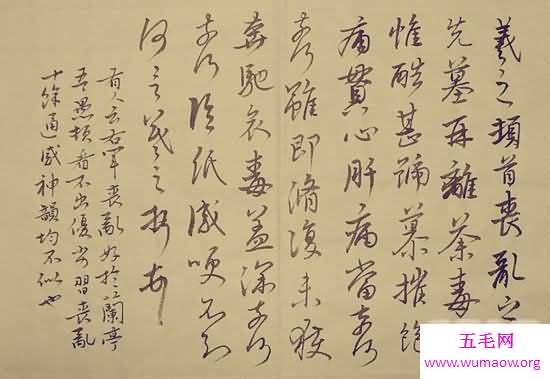 羲之頓首喪亂之
先墓再離荼毒
惟酷甚號慕摧絕
痛貫心肝痛當奈何
奈何雖即脩復未獲
奔馳哀毒益深奈何
奈何臨紙感哽不知
何言羲之頓首頓首
有人云右軍喪亂好於蘭亭
吾愚頑看不出優劣習喪亂
十餘通感神韻均不似也
五毛网
www.wumaow.org